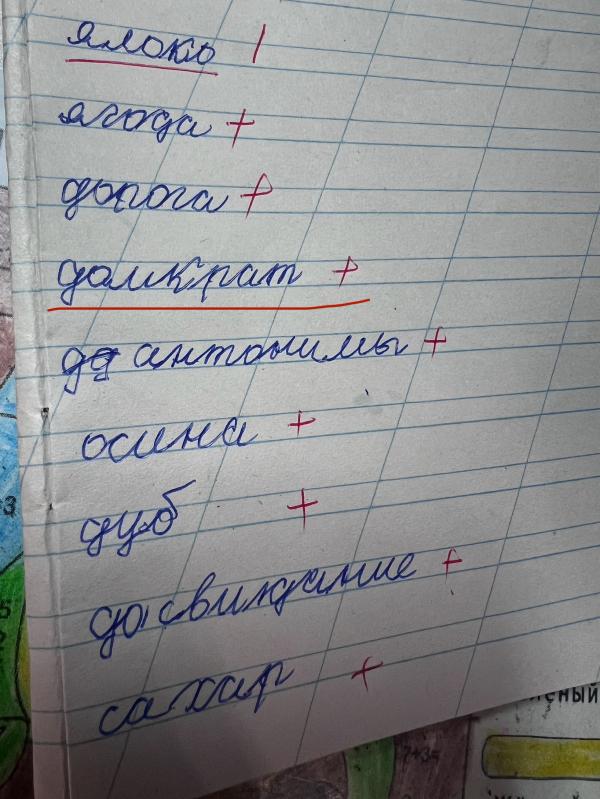 ялоко |
ягода +
дорога +
домкрат +
антонимы +
осина +
дуб +
досвидание +
сахар +
3
5
7+35
еный